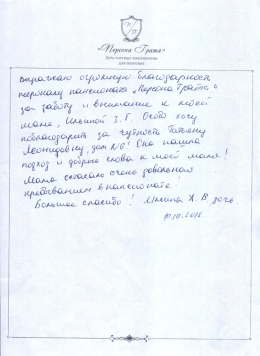 «Персона Грата»
Сеть частных пансионатов
для пожилых
Выражаю огромную благодарность
персоналу пансионата „Персона Грата“
за заботу и внимание к моей
маме, Ильиной З. Г. Особо хочу
поблагодарить за чуткость Татьяну
Леонидовну, дом №6! Она нашла
подход и доброе слова к моей маме!
Мама осталась очень довольной
пребыванием в пансионате!
Большое спасибо! Ильина Х. В дочь.
10.10.2018